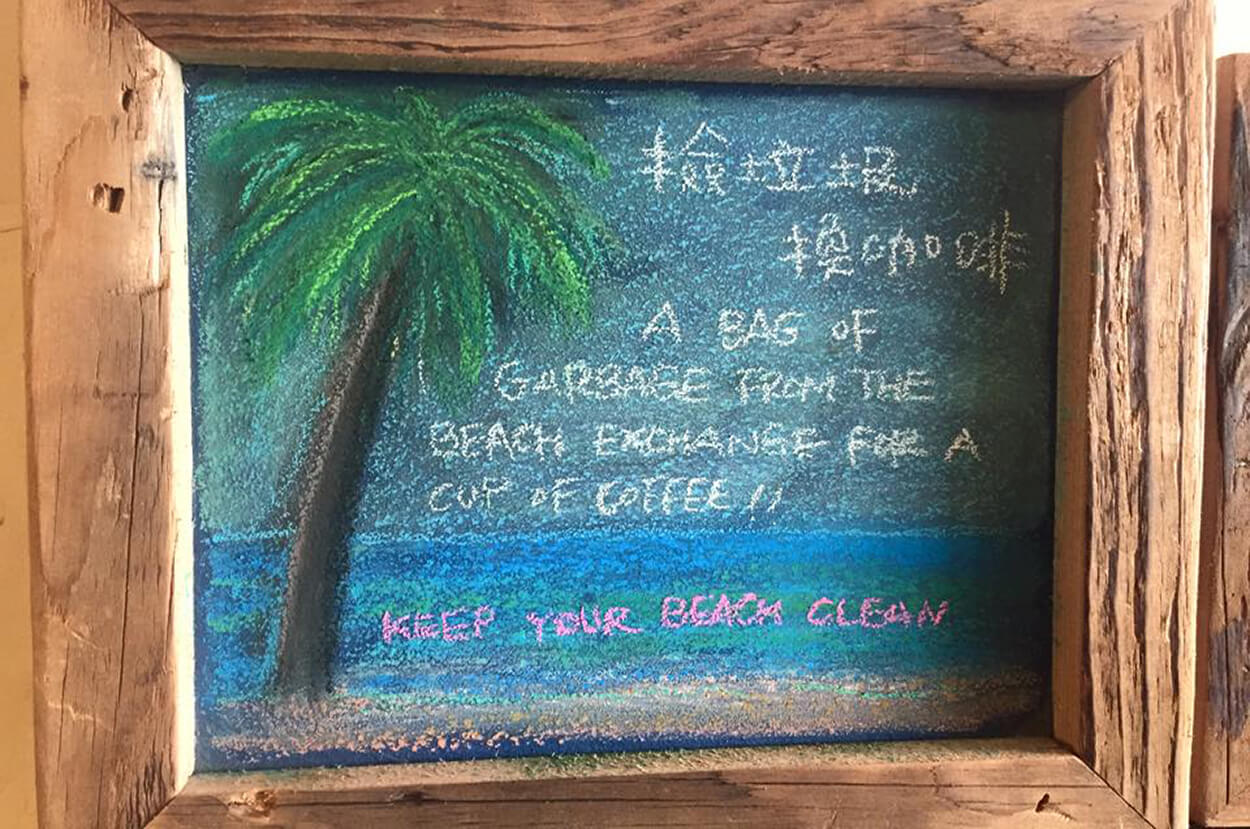 撿垃圾
換咖啡
A BAG OF
GARBAGE FROM THE
BEACH EXCHANGE FOR A
CUP OF COFFEE !!
KEEP YOUR BEACH CLEAN